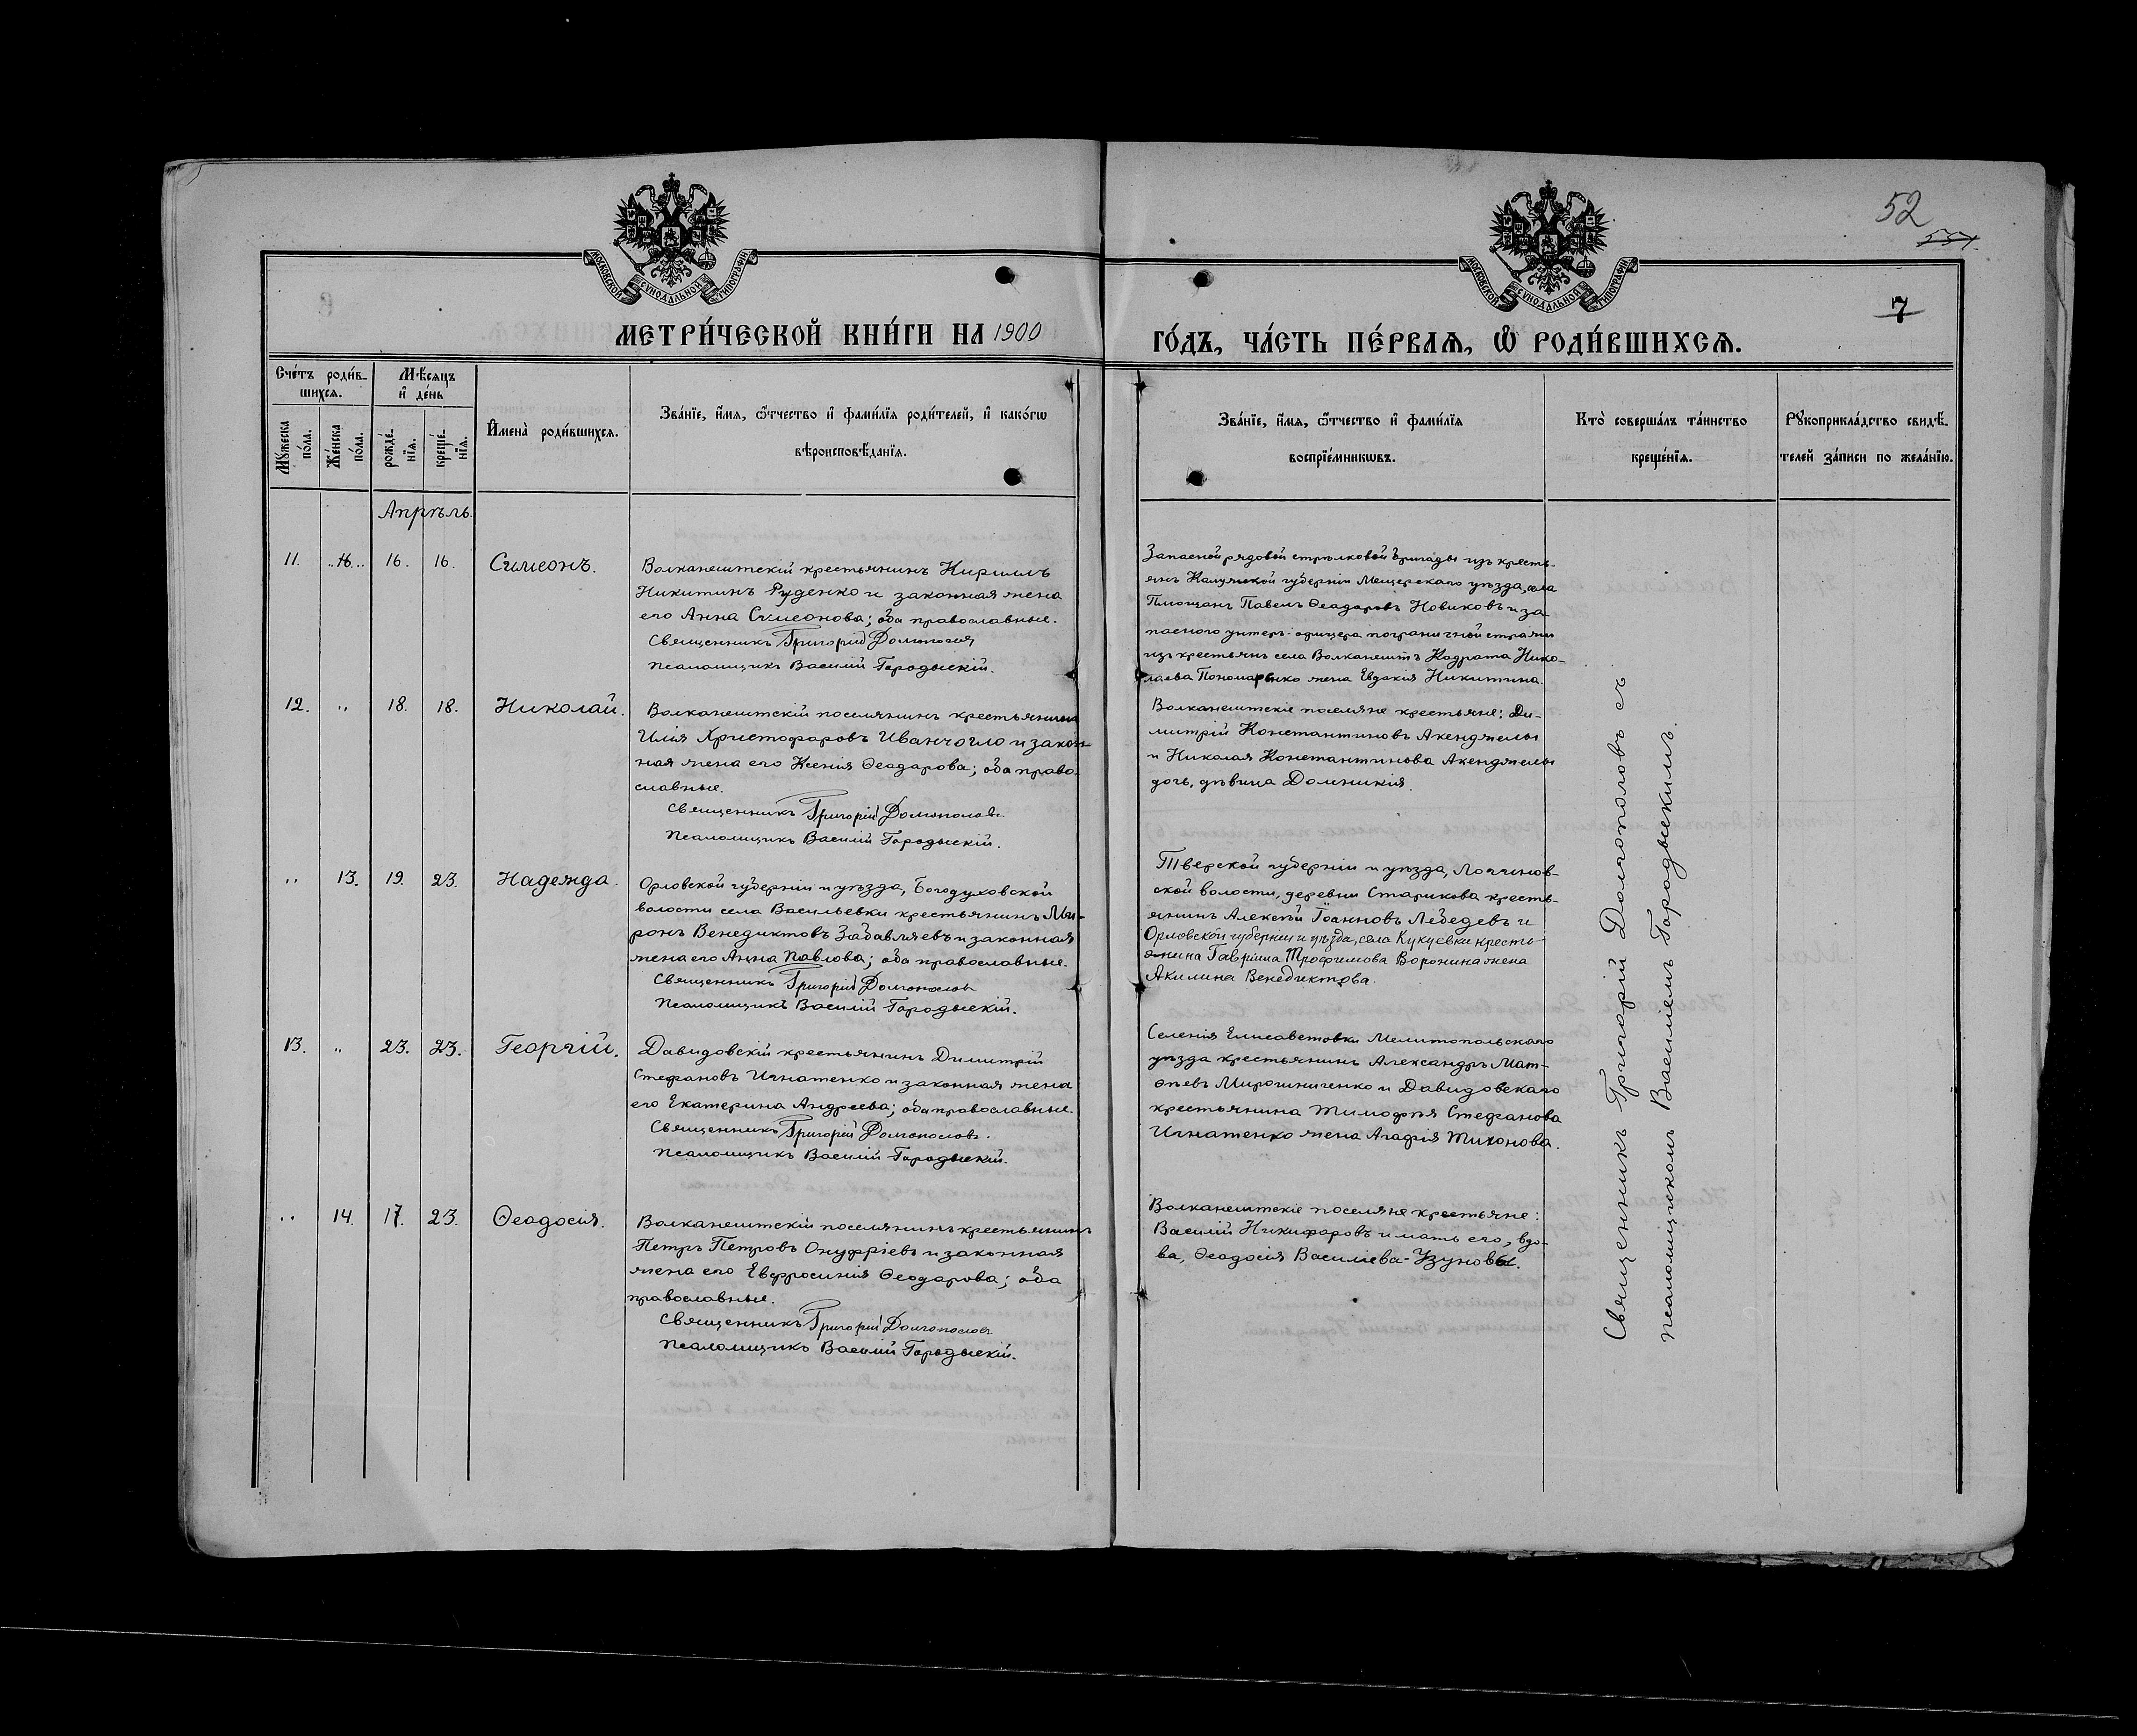 52
551.
7
МОСКОВСКОЙ СУНОДАЛЬНОЙ ТИПОГРАФІИ
МОСКОВСКОЙ СУНОДАЛЬНОЙ ТИПОГРАФІИ
МЕТРИ́ЧЕСКОЙ КНИ́ГИ НА 1900
ГО́ДЪ, ЧА́СТЬ ПЕ́РВАѦ, Ѡ҆ РОДИ́ВШИХСѦ.
Сче́тъ роди́в-
шихсѧ.
Мѣ́сѧцъ
и҆ де́нь
Мꙋ́жеска
по́ла.
Же́нска
по́ла.
рожде́-
нїѧ.
креще́-
нїѧ.
И҆мена̀ роди́вшихсѧ.
Зва́нїе, и҆́мѧ, ѻ҆́тчество и҆ фами́лїѧ роди́телей, и҆ како́гѡ
вѣроисповѣ́данїѧ.
Зва́нїе, и҆́мѧ, ѻ҆́тчество и҆ фами́лїѧ
воспрїе́мникѡвъ.
Кто̀ соверша́лъ та́инство
креще́нїѧ.
Рꙋкоприкла́дство свидѣ́-
телей за́писи по жела́нїю.
Апрѣль.
11. 16. 16. Симеонъ.
Волканештскій крестьянинъ Кириллъ
Никитинъ Руденко и законная жена
его Анна Симеонова; оба православные.
Священникъ Григорій Долгополовъ
Псаломщикъ Василій Городыскій.
Запасной рядовой стрѣлковой бригады изъ кресть-
янъ Калужской губерніи Мещерскаго уѣзда, села
Плющанъ Павелъ Ѳеодоровъ Новиковъ и за-
паснаго унтеръ-офицера пограничной стражи
изъ крестьянъ села Волканештъ Кодрата Нико-
лаева Пономаренко жена Евдокія Никитина.
12. " 18. 18. Николай.
Волканештскій поселянинъ крестьянинъ
Илія Христофоровъ Иванчогло и закон-
ная жена его Ксенія Ѳеодорова; оба право-
славные.
Священникъ Григорій Долгополовъ
Псаломщикъ Василій Городыскій.
Волканештскіе поселяне крестьяне: Ди-
митрій Константиновъ Акенджелы
и Николая Константинова Акенджелы
дочь, дѣвица Домникія.
" 13. 19. 23. Надежда.
Орловской губерніи и уѣзда, Богодуховской
волости села Васильевки крестьянинъ Ми-
ронъ Венедиктовъ Забавляевъ и законная
жена его Анна Павлова; оба православные.
Священникъ Григорій Долгополовъ
Псаломщикъ Василій Городыскій.
Тверской губерніи и уѣзда,
ской волости, деревни Старикова кресть-
янинъ Алексѣй Іоанновъ Лебедевъ и
Орловской губерніи и уѣзда, села Кукуевки кресть-
янина Гавріила Трофимова Воронина жена
Акилина Венедиктова.
13. " 23. 23. Георгій.
Давидовскій крестьянинъ Димитрій
Стефановъ Игнатенко и законная жена
его Екатерина Андреева; оба православные.
Священникъ Григорій Долгополовъ.
Псаломщикъ Василій Городыскій.
Селенія Елисаветовки Мелитопольскаго
уѣзда крестьянинъ Александръ Мат-
ѳѣевъ Мирошниченко и Давидовскаго
крестьянина Тимоѳѣя Стефанова
Игнатенко жена Агафія Тихонова.
" 14. 17. 23. Ѳеодосія.
Волканештскій поселянинъ крестьянинъ
Петръ Петровъ Онуфріевъ и законная
жена его Евфросинія Ѳеодорова; оба
православные.
Священникъ Григорій Долгополовъ
Псаломщикъ Василій Городыскій.
Волканештскіе поселяне крестьяне:
Василій Никифоровъ и мать его, вдо-
ва, Ѳеодосія Василіева-Узуновы.
Священникъ Григорій Долгополовъ съ
псаломщикомъ Василіемъ Городыскимъ.